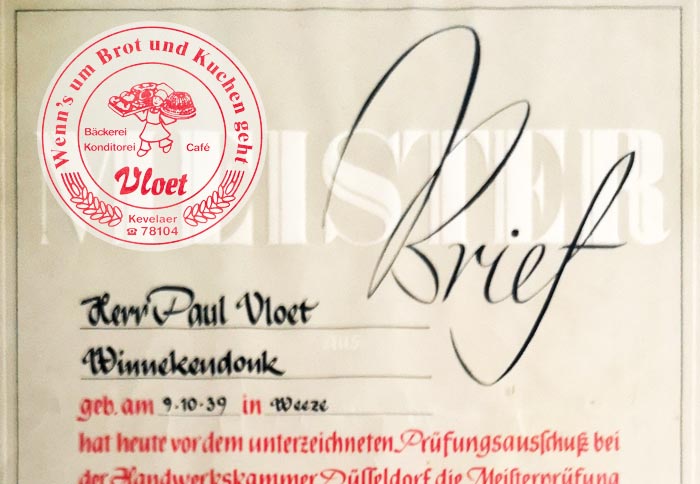 Wenn's um Brot und Kuchen geht
Bäckerei
Konditorei Café
Vloet
Kevelaer
☎ 78104
MEISTER
Brief
Herr Paul Vloet
aus
Winnekendonk
geb. am 9.10.39 in Weeze
hat heute vor dem unterzeichneten Prüfungsausſchuß bei
der Handwerkskammer Düſſeldorf die Meiſterprüfung